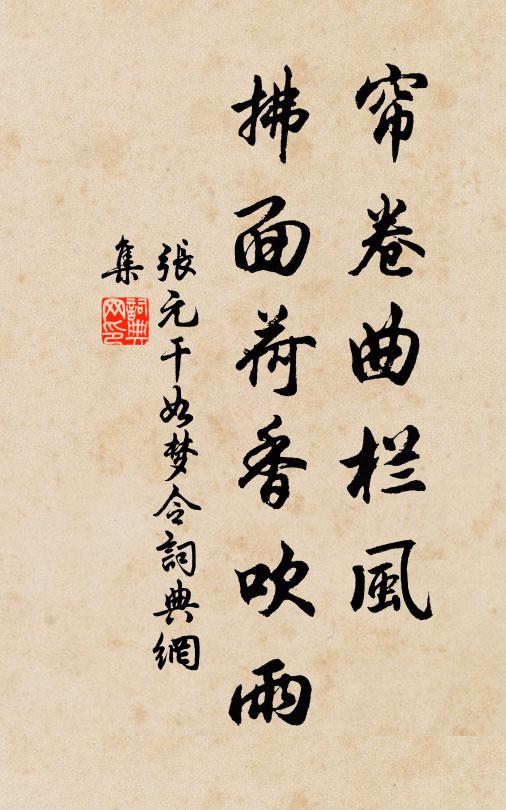 帘卷曲栏風
拂面荷香吹雨
張元干如梦令詞典網
集
詞典网印